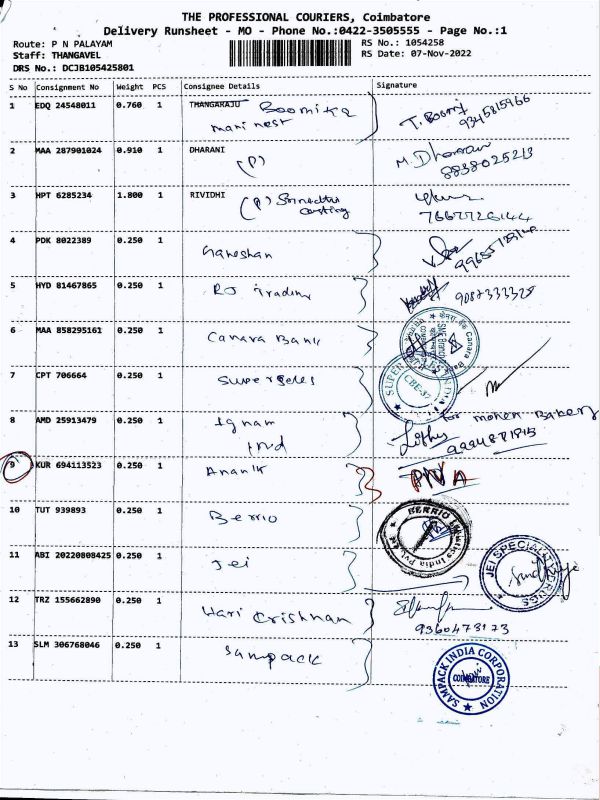 THE PROFESSIONAL COURIERS, Coimbatore
Delivery Runsheet - MO - Phone No.:0422-3505555 - Page No.:1
Route: P N PALAYAM RS No.: 1054258
Staff: THANGAVEL RS Date: 07-Nov-2022
DRS No.: DCJB105425801
S No Consignment No Weight PCS Consignee Details Signature
1 EDQ 24548011 0.760 1 THANGARAJU Boomika
mari nest
T. Boomi
9345815966
2 MAA 287901024 0.910 1 DHARANI
(P)
M. Dharani
8838025213
3 HPT 6285234 1.800 1 RIVIDHI
(P)
casting
4 PDK 8022389 0.250 1 Ganeshan
5 HYD 81467865 0.250 1 RJ Trading
6 MAA 858295161 0.250 1 Canara Bank
7 CPT 706664 0.250 1 Supersales
CBE-37
8 AMD 25913479 0.250 1 Ignam
Ind
for mohan Bakery
9 KUR 694113523 0.250 1 Anantk
PNA
10 TUT 939893 0.250 1 Berrio
BERRIO
India Pvt Ltd
11 ABI 20220808425 0.250 1 Jei
JEI SPECIALITY
12 TRZ 155662890 0.250 1 Hari Crishnan
9360473173
13 SLM 306768046 0.250 1 Sampack
SAMPACK INDIA CORPORATION
COIMBATORE